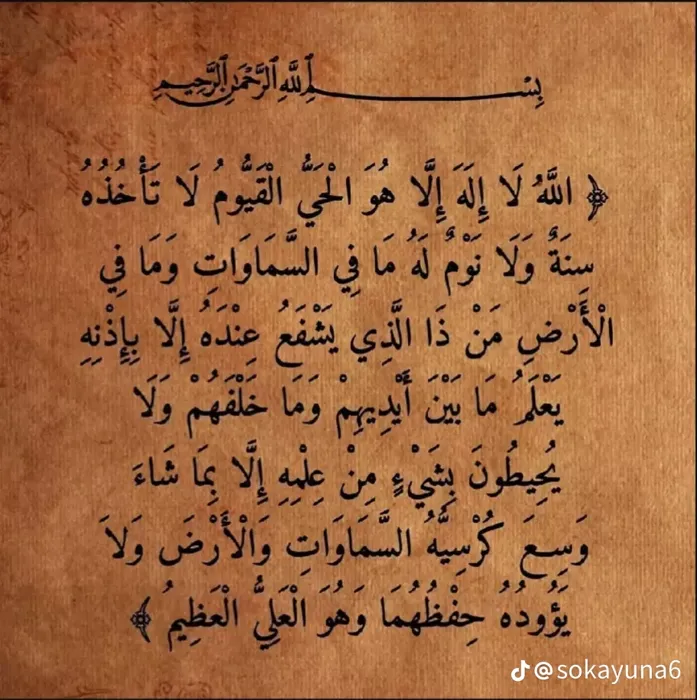 بِسْمِ ٱللَّهِ ٱلرَّحْمَٰنِ ٱلرَّحِيمِ
﴿ اللَّهُ لَا إِلَهَ إِلَّا هُوَ الْحَيُّ الْقَيُّومُ لَا تَأْخُذُهُ
سِنَةٌ وَلَا نَوْمٌ لَهُ مَا فِي السَّمَاوَاتِ وَمَا فِي
الْأَرْضِ مَنْ ذَا الَّذِي يَشْفَعُ عِنْدَهُ إِلَّا بِإِذْنِهِ
يَعْلَمُ مَا بَيْنَ أَيْدِيهِمْ وَمَا خَلْفَهُمْ وَلَا
يُحِيطُونَ بِشَيْءٍ مِنْ عِلْمِهِ إِلَّا بِمَا شَاءَ
وَسِعَ كُرْسِيُّهُ السَّمَاوَاتِ وَالْأَرْضَ وَلَا
يَؤُودُهُ حِفْظُهُمَا وَهُوَ الْعَلِيُّ الْعَظِيمُ ﴾
@sokayuna6